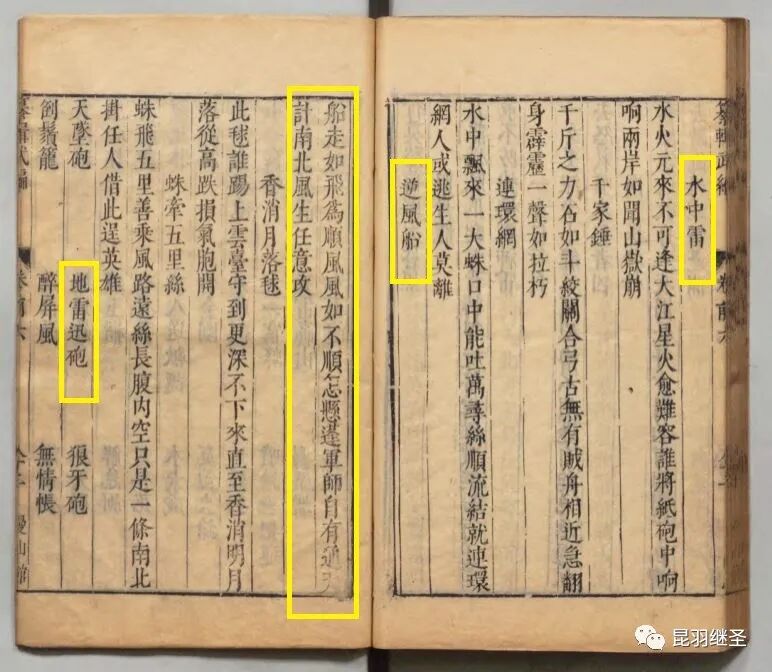 水中雷
水火元來不可逢大江星火愈難容誰將紙砲中响
响兩岸如聞山嶽崩
千家錘
千斤之力石如斗絞關合弓古無有賊舟相近急翻
身霹靂一聲如拉朽
連環網
水中飄來一大蛛口中能吐萬尋絲順流結就連環
網人或逃生人莫離
逆風船
船走如飛為順風風如不順怎懸違軍師自有通天
計南北風生任意攻
香消月落毬
此毬誰踢上雲臺守到更深不下來直至香消明月
落從高跌損氣胞開
蛛牽五里絲
蛛飛五里善乘風路遠絲長腹內空只是一條南北
掛任人借此逞英雄
天墜砲 地雷迅砲 狼牙砲
鬚籠 醉屏風 無情帳
卷前六
昆羽继圣